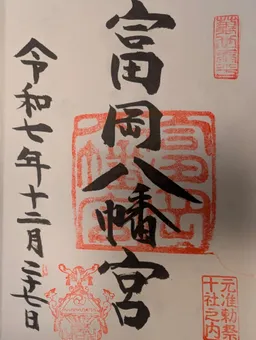 元准勅祭
十社之内
富岡八幡宮
令和七年十二月二十七日